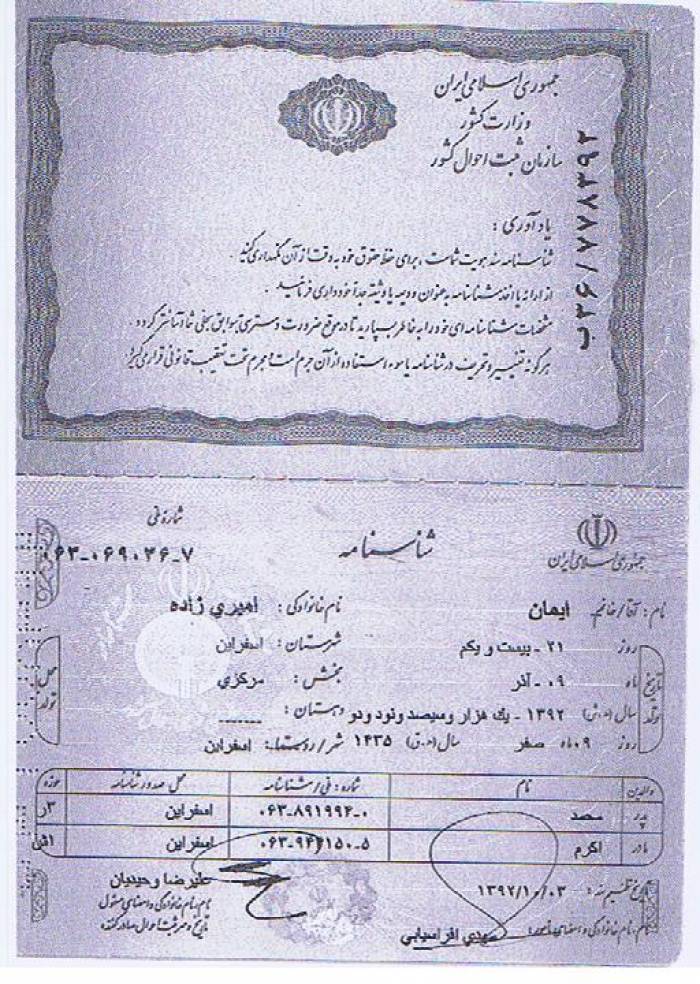 جمهوری اسلامی ایران
وزارت کشور
سازمان ثبت احوال کشور
ب۳۶/۷۷۸۳۹۲
یادآوری :
شناسنامه سند هویت شماست ، برای حفظ حقوق خود به دقت از آن نگهداری کنید .
از ارائه یا اخذ شناسنامه به عنوان ودیعه یا وثیقه جداً خودداری فرمائید .
مشخصات شناسنامه ای خود را به خاطر بسپارید تا در موقع ضرورت دسترسی به سوابق سجلی شما آسانتر گردد .
هرگونه تغییر و تحریف در شناسنامه یا سوء استفاده از آن جرم است و مجرم تحت تعقیب قانونی قرار می گیرد
جمهوری اسلامی ایران
شناسنامه
شماره ملی
۰۶۳-۰۶۹۰۳۶-۷
نام : آقا / خانم ایمان نام خانوادگی : امیری زاده
تاریخ تولد
روز ۲۱ - بیست و یکم
ماه ۰۹ - آذر
سال (ه.ش) ۱۳۹۲ - یک هزار و سیصد و نود و دو
روز ۰۹ ماه صفر سال (ه.ق) ۱۴۳۵
محل تولد
شهرستان : اسفراین
بخش : مرکزی
دهستان : ------
شهر / روستا : اسفراین
والدین نام شماره : ملی / شناسنامه محل صدور شناسنامه حوزه
پدر ۰۶۳-۸۹۱۹۹۴-۰ اسفراین ۳ر
مادر اکرم ۵-اسفراین
تاریخ تنظیم سند : ۱۳۹۲/۱۰/۰۳
نام ، نام خانوادگی و امضای مامور : مهدی افراسیابی
علیرضا وحیدیان
نام ، نام خانوادگی و امضای مسئول
تاریخ و مهر ثبت احوال صادر کننده